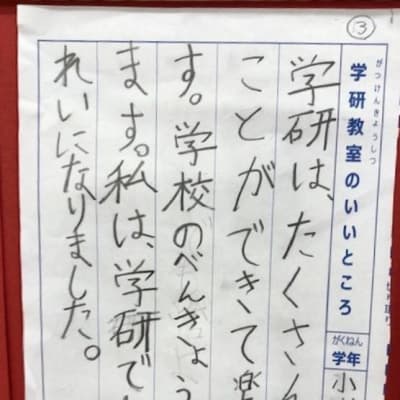 ③
がっけんきょうしつ
学研教室のいいところ
がくねん
学年
小
学研は、たくさん
ことができて楽
す。学校のべんきょう
ます。私は、学研で
れいになりました。